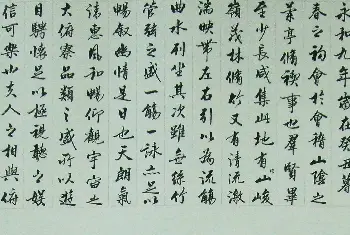 永和九年歲在癸丑暮
春之初會於會稽山陰之
蘭亭脩禊事也羣賢畢
至少長咸集此地有山峻
嶺茂林脩竹又有清流激
湍映帶左右引以為流觴
曲水列坐其次雖無絲竹
管絃之盛一觴一詠亦足以
暢敘幽情是日也天朗氣
清惠風和暢仰觀宇宙之
大俯察品類之盛所以遊
目騁懷足以極視聽之娛
信可樂也夫人之相與俯